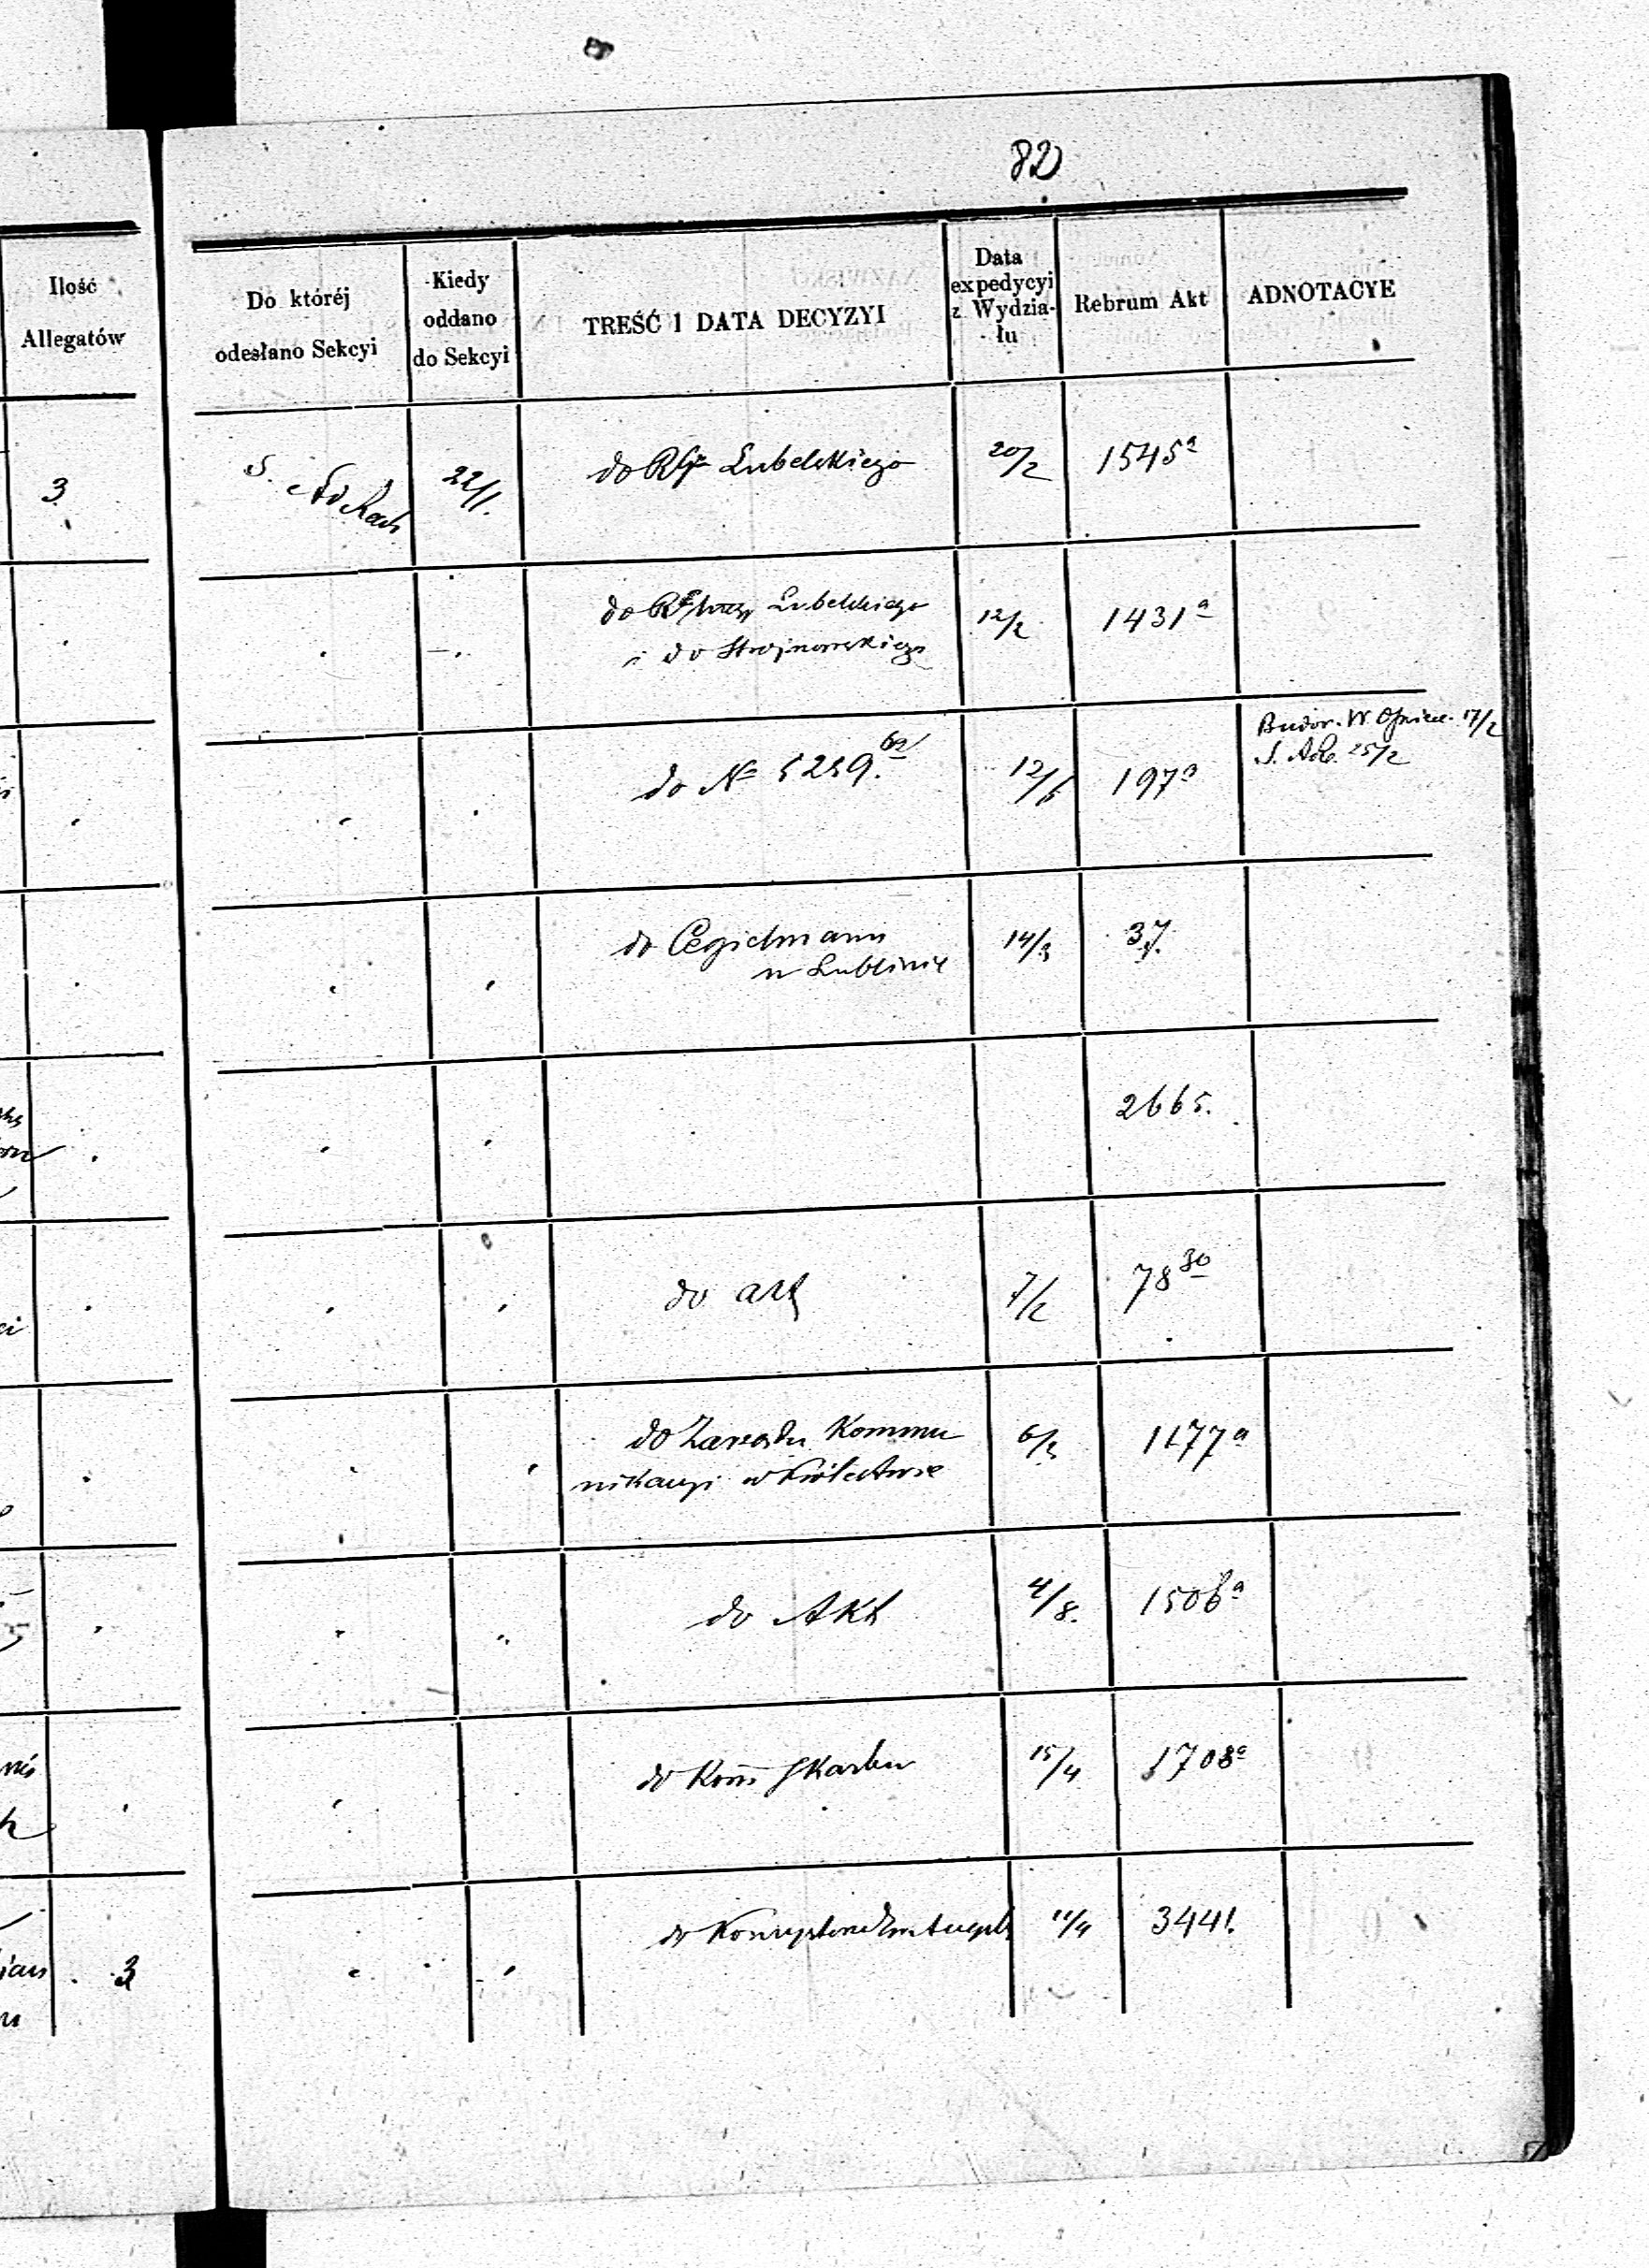 82
Ilość
Allegatów
Do któréj
odesłano Sekcyi
Kiedy
oddano
do Sekcyi
TREŚĆ I DATA DECYZYI
Data
expedycyi
z Wydzia-
łu
Rebrum Akt
ADNOTACYE
3
S.
22/1.
do Lubelskiego
20/2
1545a
do Lubelskiego
i do Strojnowskiego
12/2
1431a
do No 5259.
12/5
197a
17/2
25/2
do Cegielmann
w Lublinie
14/3
37.
2665.
do akt
7/2
7830
do Zarządu Kommu
nikacyi w Królestwie
6/3
1177a
do Akt
4/8.
1506a
do Kom Skarbu
15/4
1708a
do
11/4
3441.
3